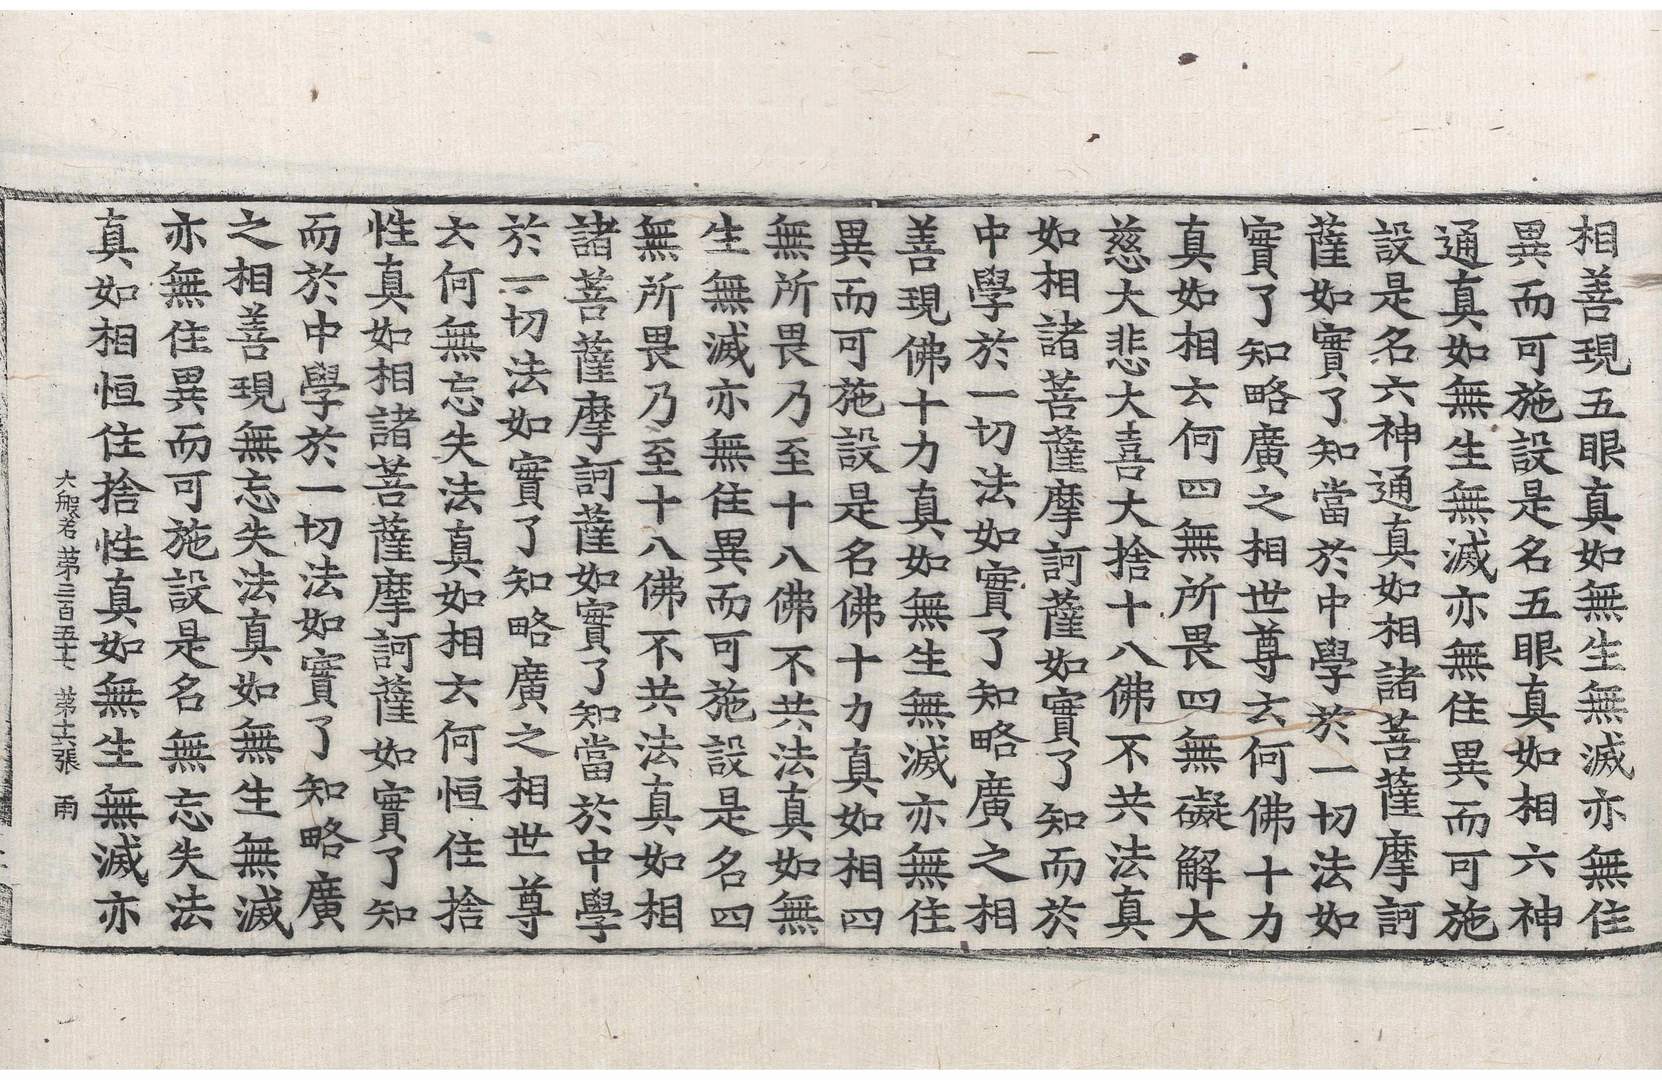 相善現五眼真如無生無滅亦無住
異而可施設是名五眼真如相六神
通真如無生無滅亦無住異而可施
設是名六神通真如相諸菩薩摩訶
薩如實了知當於中學於一切法如
實了知略廣之相世尊云何佛十力
真如相云何四無所畏四無礙解大
慈大悲大喜大捨十八佛不共法真
如相諸菩薩摩訶薩如實了知而於
中學於一切法如實了知略廣之相
善現佛十力真如無生無滅亦無住
異而可施設是名佛十力真如相四
無所畏乃至十八佛不共法真如無
生無滅亦無住異而可施設是名四
無所畏乃至十八佛不共法真如相
諸菩薩摩訶薩如實了知當於中學
於一切法如實了知略廣之相世尊
云何無忘失法真如相云何恒住捨
性真如相諸菩薩摩訶薩如實了知
而於中學於一切法如實了知略廣
之相善現無忘失法真如無生無滅
亦無住異而可施設是名無忘失法
真如相恒住捨性真如無生無滅亦
大般若第三百五十七 第十六張 雨